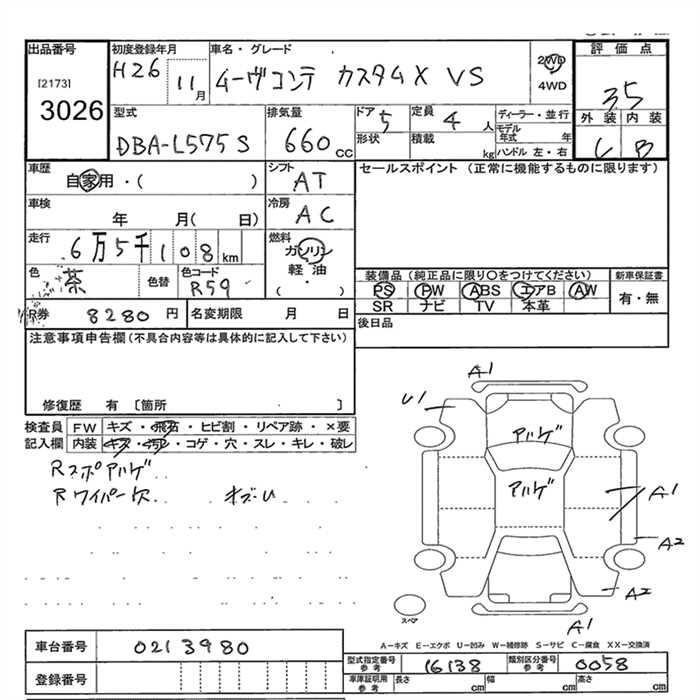 出品番号 初度登録年月 車名・グレード 評価点
[2173] H26 11月 ムーヴコンテ カスタムX VS 2WD 35
3026 4WD
外装 内装
C B
型式 排気量 ドア 定員 ディーラー・並行
DBA-L575S 660cc 5 4人 モデル年式 年
形状 積載 kg ハンドル 左・右
車歴 シフト セールスポイント (正常に機能するものに限ります)
自家用・( ) AT
車検 冷房
年 月( 日) AC
走行 燃料
6万5千108km ガソリン
軽油
・
( )
色 色替 色コード
茶 R59
装備品(純正品に限り○をつけてください) 新車保証書
PS PW ABS エアB AW 有・無
SR ナビ TV 本革
R券 8280円 名変期限 月 日 後日品
注意事項申告欄(不具合内容等は具体的に記入して下さい)
修復歴 有 〔箇所 〕
検査員 FW キズ・飛石・ヒビ割・リペア跡・×要
記入欄 内装 キズ・汚れ・コゲ・穴・スレ・キレ・破レ
Rスポアルゲ
Rワイパー欠 キズU
A1
U1
アルゲ
アルゲ
A1
A2
A2
スペア
A1
A-キズ E-エクボ U-凹み W-補修跡 S-サビ C-腐食 XX-交換済
車台番号 0213980
型式指定番号参考 16138 類別区分番号参考 0058
登録番号
車庫証明用参考 長さ cm 幅 cm 高さ cm